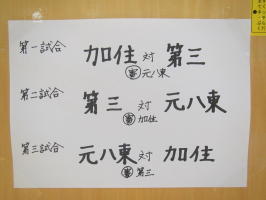 第一試合 加住 対 第三
㊢ 元八東
第二試合 第三 対 元八東
㊢ 加住
第三試合 元八東 対 加住
㊢ 第三